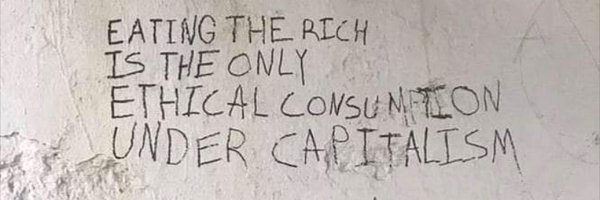 EATING THE RICH
IS THE ONLY
ETHICAL CONSUMPTION
UNDER CAPITALISM